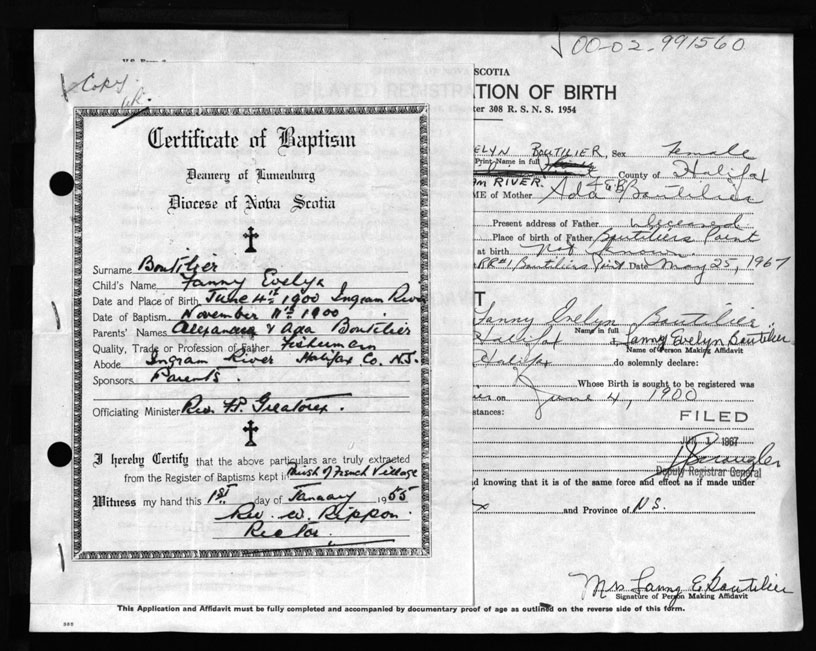 00-02-991560
Copy.
Certificate of Baptism
Deanery of Lunenburg
Diocese of Nova Scotia
Surname Boutilier
Child's Name Fanny Evelyn
Date and Place of Birth June 4th 1900 Ingram River
Date of Baptism November 11th 1900
Parents' Names Alexander & Ada Boutilier
Quality, Trade or Profession of Father Fisherman
Abode Ingram River Halifax Co. N.S.
Sponsors Parents.
Officiating Minister Rev. Greatorex.
I hereby Certify that the above particulars are truly extracted
from the Register of Baptisms kept in Parish of French Village
Witness my hand this 1st day of January 1955
Rev. W. Rippon.
Rector.
SCOTIA
TION OF BIRTH
ter 308 R. S. N. S. 1954
ELYN BOUTILIER, Sex Female
Print Name in full
County of Halifax
AM RIVER.
ME of Mother Ada Boutilier
Present address of Father Deceased
Place of birth of Father Boutiliers Point
at birth not known
RR#1 Boutiliers Point Date May 25, 1967
T
Fanny Evelyn Boutilier
Name in full
Halifax I, Fanny Evelyn Boutilier
Name of Person Making Affidavit
Halifax do solemnly declare:
Whose Birth is sought to be registered was
on June 4, 1900
stances:
FILED
JUN 1 1967
Deputy Registrar General
d knowing that it is of the same force and effect as if made under
x and Province of N.S.
Mrs Fanny E Boutilier
Signature of Person Making Affidavit
This Application and Affidavit must be fully completed and accompanied by documentary proof of age as outlined on the reverse side of this form.